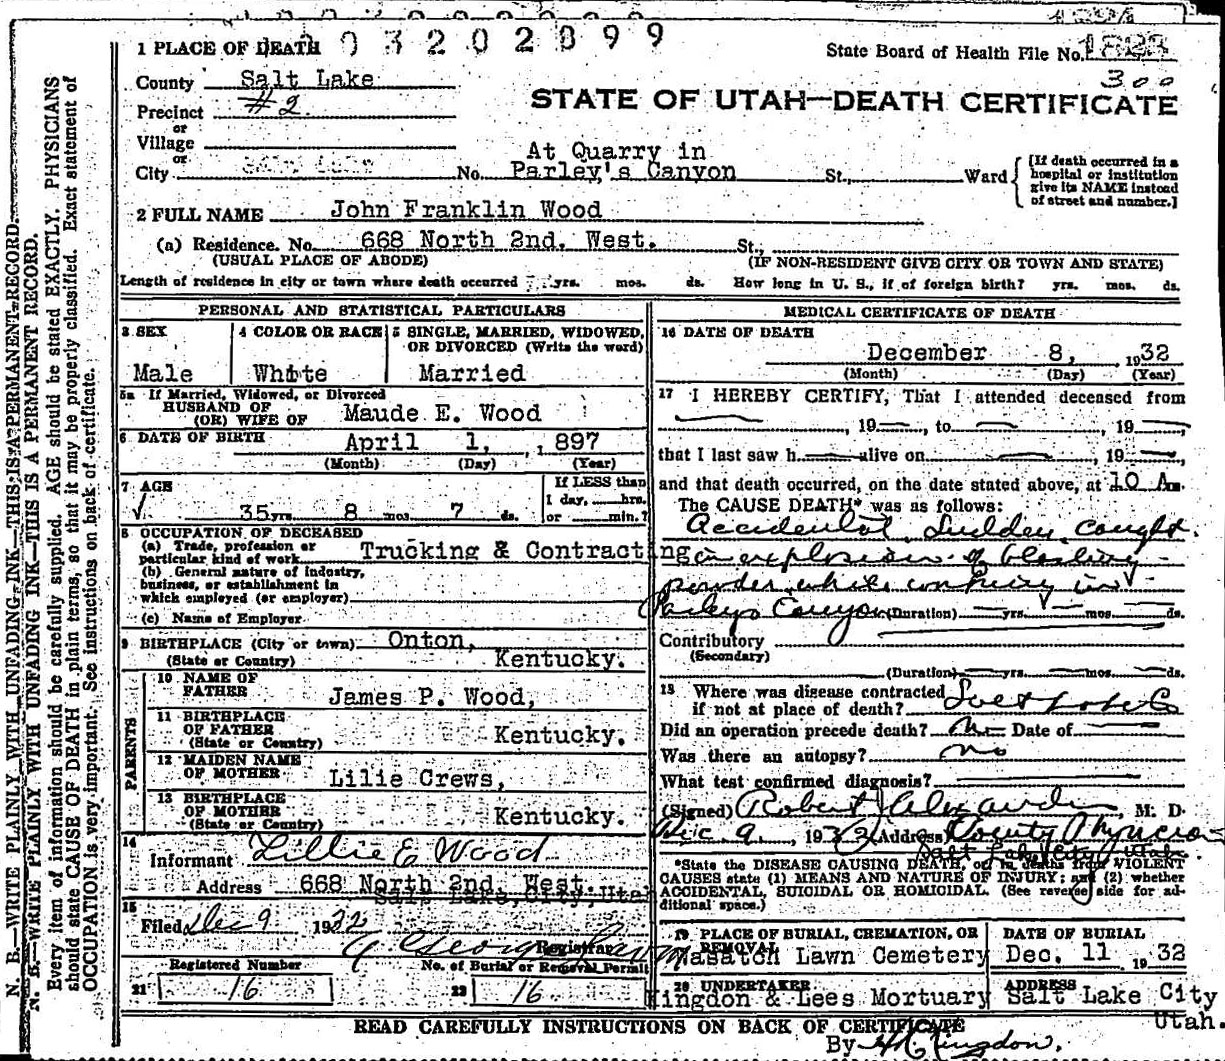 1 PLACE OF DEATH
03202899
State Board of Health File No. 1823
300
County Salt Lake
Precinct #2.
or
Village
or
City
STATE OF UTAH—DEATH CERTIFICATE
At Quarry in
No. Parley's Canyon St., Ward
[If death occurred in a
hospital or institution
give its NAME instead
of street and number.]
2 FULL NAME John Franklin Wood
(a) Residence. No. 668 North 2nd. West. St.,
(USUAL PLACE OF ABODE) (IF NON-RESIDENT GIVE CITY OR TOWN AND STATE)
Length of residence in city or town where death occurred yrs. mos. ds. How long in U. S., if of foreign birth? yrs. mos. ds.
PERSONAL AND STATISTICAL PARTICULARS
3 SEX
Male
4 COLOR OR RACE
White
5 SINGLE, MARRIED, WIDOWED,
OR DIVORCED (Write the word)
Married
5a If Married, Widowed, or Divorced
HUSBAND OF
(OR) WIFE OF Maude E. Wood
6 DATE OF BIRTH April 1, 1897
(Month) (Day) (Year)
7 AGE
35 yrs. 8 mos. 7 ds.
If LESS than
1 day, hrs.
or min.?
8 OCCUPATION OF DECEASED
(a) Trade, profession or
particular kind of work Trucking & Contracting
(b) General nature of industry,
business, or establishment in
which employed (or employer)
(c) Name of Employer
9 BIRTHPLACE (City or town) Onton,
(State or Country) Kentucky.
PARENTS
10 NAME OF
FATHER James P. Wood,
11 BIRTHPLACE
OF FATHER
(State or Country) Kentucky.
12 MAIDEN NAME
OF MOTHER Lilie Crews,
13 BIRTHPLACE
OF MOTHER
(State or Country) Kentucky.
14
Informant Lillie E Wood
Address 668 North 2nd. West.
Salt Lake, City, Utah
15
Filed Dec 9 1932
Registrar
Registered Number
21 16
No. of Burial or Removal Permit
22 16
MEDICAL CERTIFICATE OF DEATH
16 DATE OF DEATH
December 8, 1932
(Month) (Day) (Year)
17 I HEREBY CERTIFY, That I attended deceased from
, 19 , to , 19 ,
that I last saw h alive on , 19 ,
and that death occurred, on the date stated above, at 10 A m.
The CAUSE DEATH* was as follows:
Accidental Sudden caught
in explosion of blasting
powder while working in
Parleys Canyon (Duration) yrs. mos. ds.
Contributory
(Secondary)
(Duration) yrs. mos. ds.
18 Where was disease contracted
if not at place of death?
Did an operation precede death? no Date of
Was there an autopsy? no
What test confirmed diagnosis?
(Signed) Robert Alexander, M. D.
Dec 9, 1932 Address County Physician
Salt Lake City Utah.
*State the DISEASE CAUSING DEATH, or in deaths from VIOLENT
CAUSES state (1) MEANS AND NATURE OF INJURY; and (2) whether
ACCIDENTAL, SUICIDAL OR HOMICIDAL. (See reverse side for ad-
ditional space.)
19 PLACE OF BURIAL, CREMATION, OR
REMOVAL
Wasatch Lawn Cemetery
DATE OF BURIAL
Dec. 11 1932
20 UNDERTAKER
Kingdon & Lees Mortuary
ADDRESS
Salt Lake City
Utah.
READ CAREFULLY INSTRUCTIONS ON BACK OF CERTIFICATE
By Kingdon.
N. B.—WRITE PLAINLY WITH UNFADING INK—THIS IS A PERMANENT RECORD.
N. B.—WRITE PLAINLY WITH UNFADING INK—THIS IS A PERMANENT RECORD.
Every item of information should be carefully supplied. AGE should be stated EXACTLY. PHYSICIANS
should state CAUSE OF DEATH in plain terms, so that it may be properly classified. Exact statement of
OCCUPATION is very important. See instructions on back of certificate.